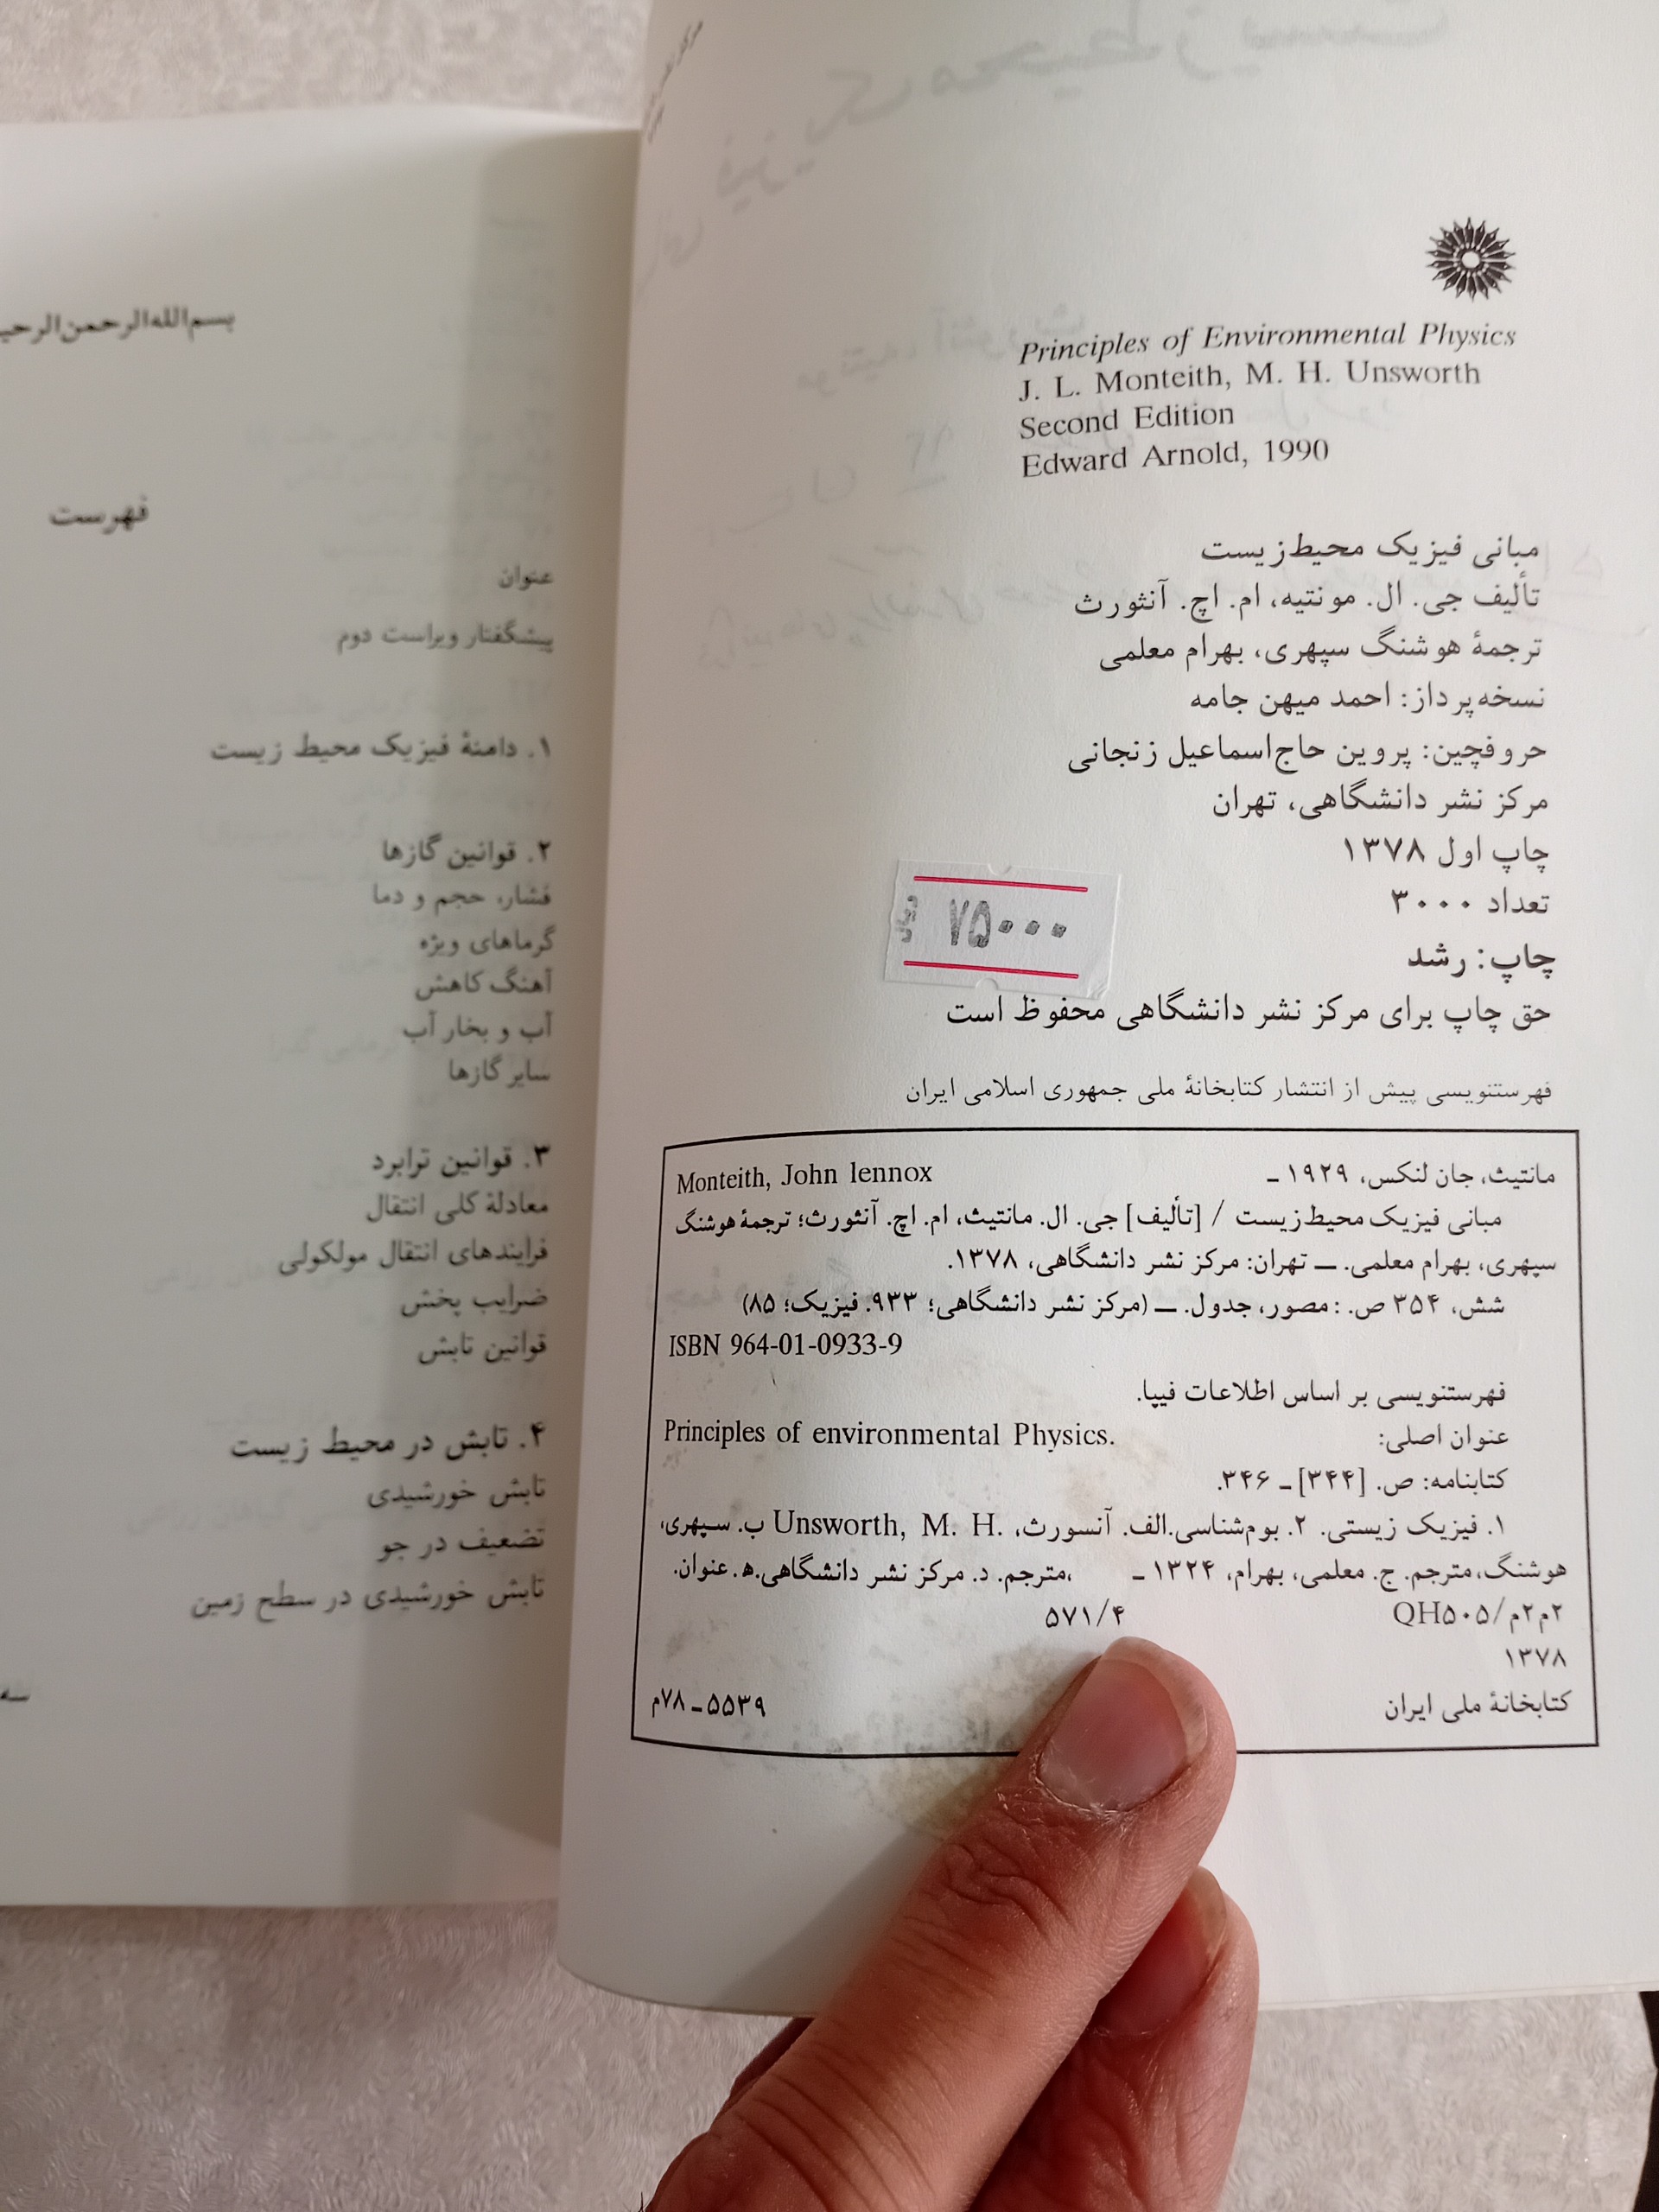 Principles of Environmental Physics
J. L. Monteith, M. H. Unsworth
Second Edition
Edward Arnold, 1990
مبانی فیزیک محیط‌زیست
تألیف جی. ال. مونتیه، ام. اچ. آنثورث
ترجمهٔ هوشنگ سپهری، بهرام معلمی
نسخه‌پرداز: احمد میهن جامه
حروفچین: پروین حاج‌اسماعیل زنجانی
مرکز نشر دانشگاهی، تهران
چاپ اول ۱۳۷۸
تعداد ۳۰۰۰
۷۵۰۰۰ ریال
چاپ: رشد
حق چاپ برای مرکز نشر دانشگاهی محفوظ است
فهرستنویسی پیش از انتشار کتابخانهٔ ملی جمهوری اسلامی ایران
مانتیث، جان لنکس، ۱۹۲۹ ـ Monteith, John lennox
مبانی فیزیک محیط‌زیست / [تألیف] جی. ال. مانتیث، ام. اچ. آنثورث؛ ترجمهٔ هوشنگ
سپهری، بهرام معلمی. ــ تهران: مرکز نشر دانشگاهی، ۱۳۷۸.
شش، ۳۵۴ ص. : مصور، جدول. ــ (مرکز نشر دانشگاهی؛ ۹۳۳. فیزیک؛ ۸۵)
ISBN 964-01-0933-9
فهرستنویسی بر اساس اطلاعات فیپا.
عنوان اصلی: Principles of environmental Physics.
کتابنامه: ص. [۳۴۴] ـ ۳۴۶.
۱. فیزیک زیستی. ۲. بوم‌شناسی.الف. آنسورث، Unsworth, M. H. ب. سپهری،
هوشنگ، مترجم. ج. معلمی، بهرام، ۱۳۲۴ ـ ،مترجم. د. مرکز نشر دانشگاهی.ه‍. عنوان.
۲م۲م/QH۵۰۵ ۵۷۱/۴
۱۳۷۸
کتابخانهٔ ملی ایران ۵۵۳۹ـ۷۸م
بسم‌الله‌الرحمن‌الرحی
فهرست
عنوان
پیشگفتار ویراست دوم
۱. دامنهٔ فیزیک محیط زیست
۲. قوانین گازها
فشار، حجم و دما
گرماهای ویژه
آهنگ کاهش
آب و بخار آب
سایر گازها
۳. قوانین ترابرد
معادلهٔ کلی انتقال
فرایندهای انتقال مولکولی
ضرایب پخش
قوانین تابش
۴. تابش در محیط زیست
تابش خورشیدی
تضعیف در جو
تابش خورشیدی در سطح زمین
سه